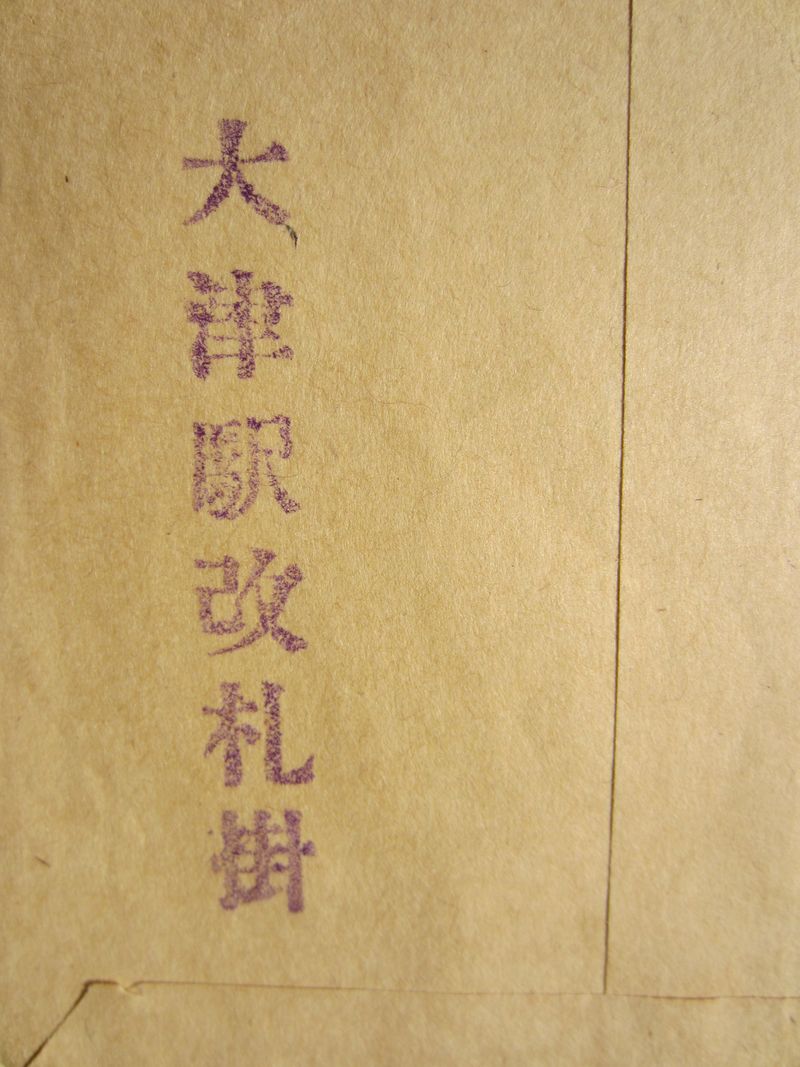 大津駅改札掛